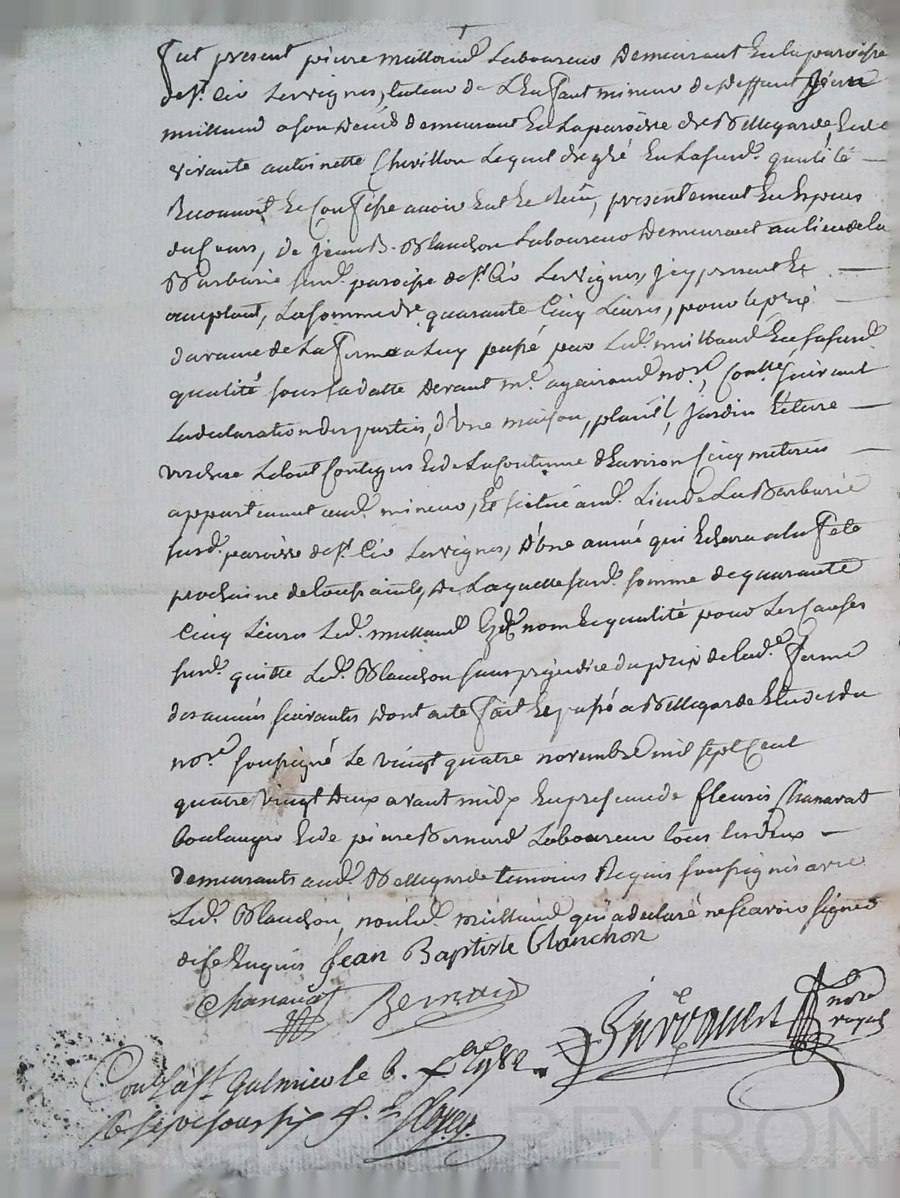 fut présent pierre milland Laboureur demeurant En la paroisse
de st. Cir Les vignes, tuteur de L'Enfant mineur de deffunt pierre
milland a son deced demeurant En La paroisse de Bellegarde Et de
vivante antoinette Chevillon Lequel de gré En La susd. qualité
Reconnoit Et Confesse avoir Eut Et Reçu, presentement En Especes
du Cours, de jean B. Blanchon Laboureur demeurant au lieu de la
Barbarie susd. paroisse de st. Cir Les vignes, icy present Et
acceptant, La somme de quarante Cinq Livres, pour le prix
de La ferme a Luy passé par Led. milland En sa susd.
qualité sous sa datte devant me. nore., suivant
La declaration des parties, d'une maison, jardin Et terre
Le tout Contigus Et de La Contenue d'Environ Cinq meterées
appartenant aud. mineur, Et situé aud. Lieu de La Barbarie
susd. paroisse de st. Cir Les vignes, d'une année qui Echera a la fete
prochaine de toussaints, De Laquelle susd. somme de quarante
Cinq Livres Led. milland nom Et qualité pour Les Causes
susd. quitte Led. Blanchon sans prejudice du prix de lad. ferme
des années suivantes dont acte fait Et passé a Bellegarde Etude du
nore. soussigné Le vingt quatre novembre mil sept Cent
quatre vingt deux avant midy En presence de fleuris Chanavat
boulanger Et de pierre Bernard Laboureur tous les deux
demeurants aud. Bellegarde temoins Requis soussignés avec
Led. Blanchon, non led. milland qui a declaré ne scavoir signer
de ce Enquis Jean Baptiste Blanchon
Chanavat Bernard
nore
royal
Conlé a st. Galmier le 6. xbre 1782.
PEYRON